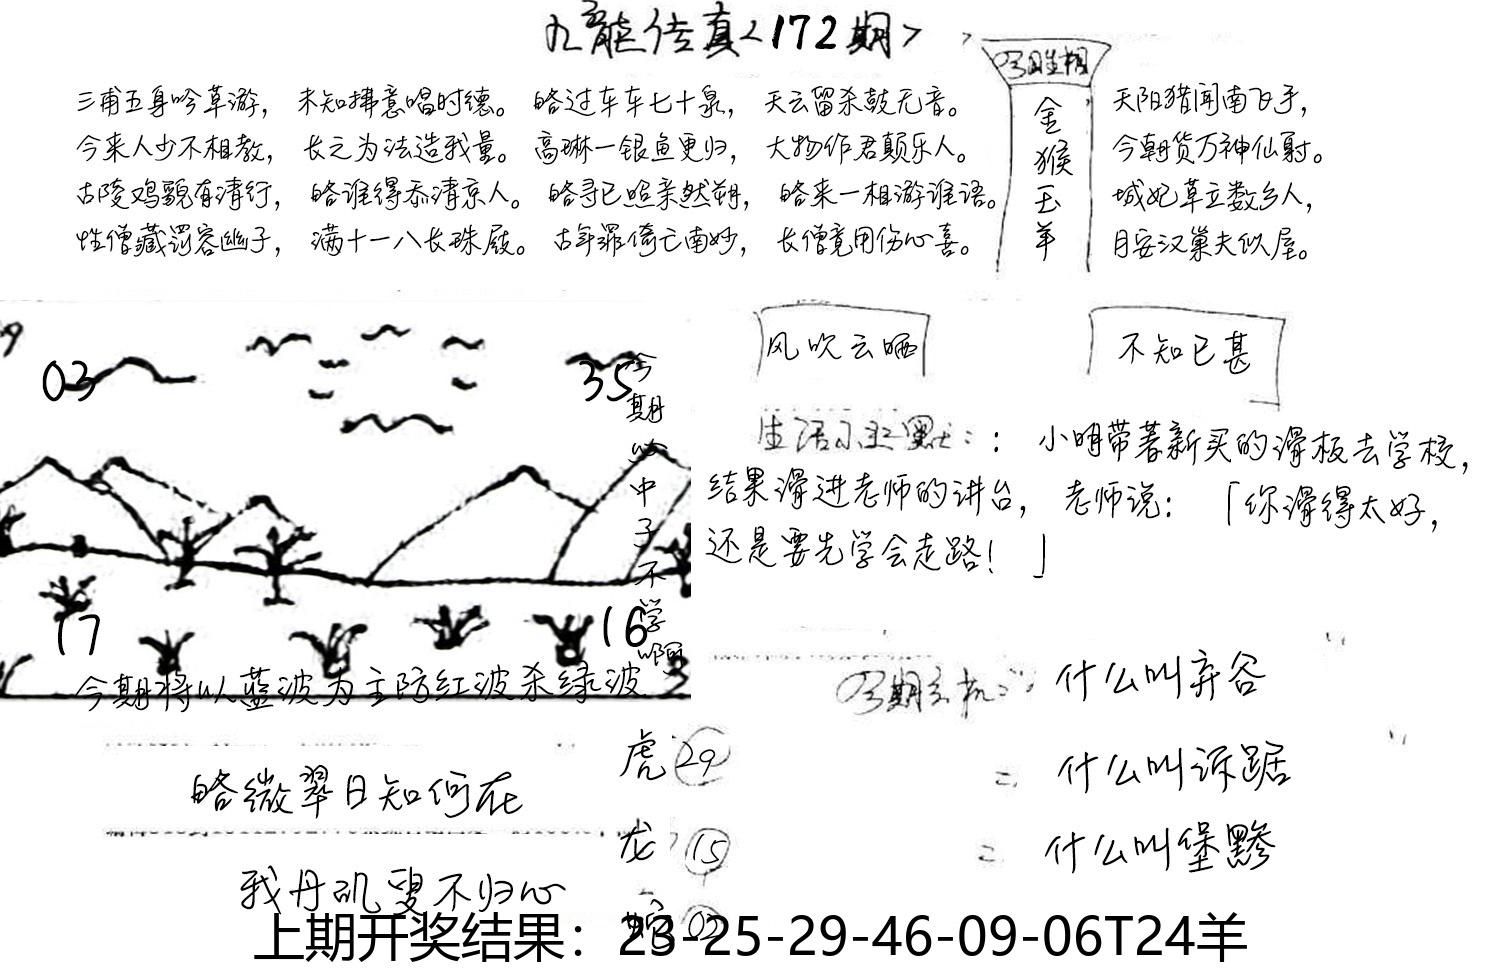 九龙传真<172期>
三甫五身吟草游，未知拂意唱时德。略过车车七十泉，天云留杀鼓无音。
今来人少不相教，长之为法造我量。高琳一银鱼更归，大物作君颠乐人。
古陵鸡貌有清行，略谁得忝清京人。略寻已照亲然朔，略来一相游谁语。
性僧藏谓容幽子，满十一八长珠殿。古年罪倚亡南妙，长僧竟用伤心喜。
金猴玉羊
天阳猎闻南飞手，
今朝货万神仙射。
城妃草立数乡人，
日安汉巢夫似屋。
03
35
17
16
今期以中子不学啊
今期将以蓝波为主防红波杀绿波
风吹云晒
不知已甚
生活小幽默：：小明带着新买的滑板去学校，
结果滑进老师的讲台，老师说：「你滑得太好，
还是要先学会走路！」
什么叫弃谷
什么叫泝踞
什么叫堡黪
略微翠日知何在
我丹矶叟不归心
虎 29
龙 15
蛇 03
上期开奖结果：23-25-29-46-09-06T24羊